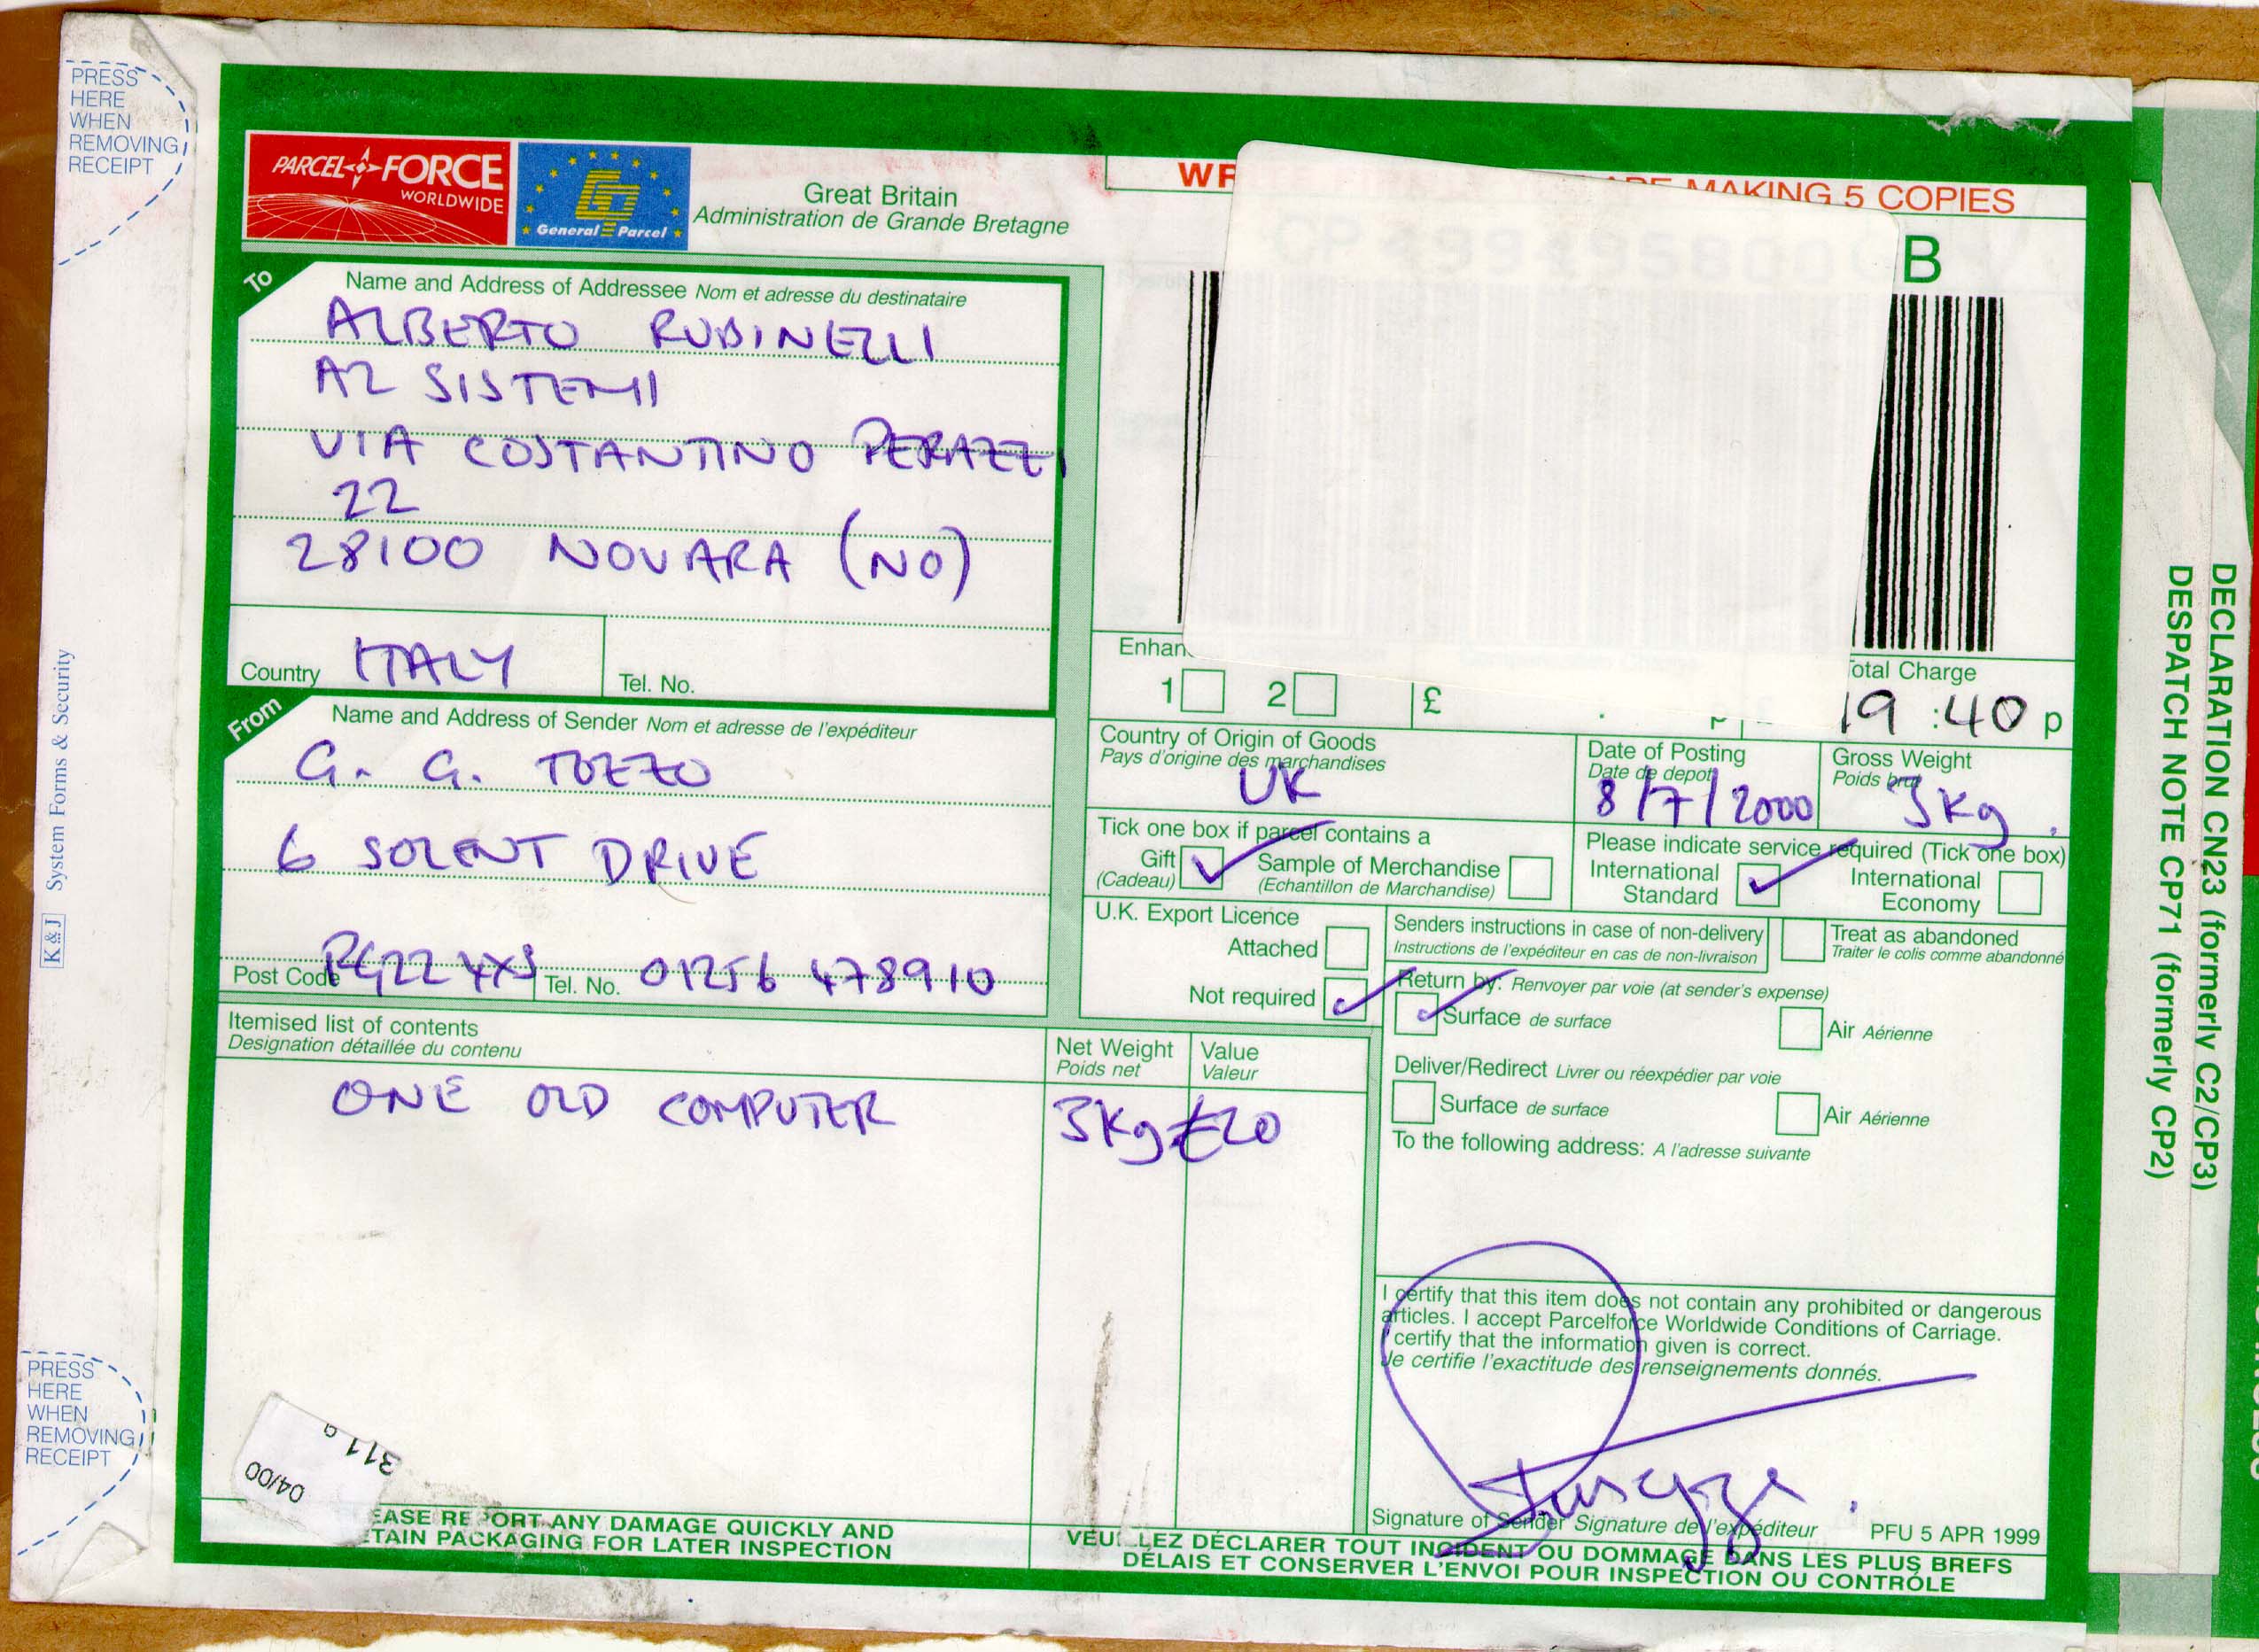 PRESS
HERE
WHEN
REMOVING
RECEIPT
PARCEL FORCE
WORLDWIDE
General Parcel
Great Britain
Administration de Grande Bretagne
MAKING 5 COPIES
B
To
Name and Address of Addressee Nom et adresse du destinataire
ALBERTO RUBINELLI
A2 SISTEMI
VIA COSTANTINO PERAZZI
22
28100 NOVARA (NO)
Country ITALY Tel. No.
From
Name and Address of Sender Nom et adresse de l'expéditeur
G. G. TOZZO
6 SOLENT DRIVE
Post Code RG22 4XS Tel. No. 01256 478910
Itemised list of contents
Designation détaillée du contenu
Net Weight
Poids net
Value
Valeur
ONE OLD COMPUTER 3Kg £20
Enhan
1 2 £ . p
Total Charge
19:40 p
Country of Origin of Goods
Pays d'origine des marchandises
UK
Date of Posting
Date de depot
8/7/2000
Gross Weight
Poids brut
3Kg.
Tick one box if parcel contains a
Gift
(Cadeau)
Sample of Merchandise
(Echantillon de Marchandise)
Please indicate service required (Tick one box)
International
Standard
International
Economy
U.K. Export Licence
Attached
Not required
Senders instructions in case of non-delivery
Instructions de l'expéditeur en cas de non-livraison
Treat as abandoned
Traiter le colis comme abandonné
Return by: Renvoyer par voie (at sender's expense)
Surface de surface
Air Aérienne
Deliver/Redirect Livrer ou réexpédier par voie
Surface de surface
Air Aérienne
To the following address: A l'adresse suivante
I certify that this item does not contain any prohibited or dangerous
articles. I accept Parcelforce Worldwide Conditions of Carriage.
I certify that the information given is correct.
Je certifie l'exactitude des renseignements donnés.
Signature of Sender Signature de l'expéditeur PFU 5 APR 1999
EASE REPORT ANY DAMAGE QUICKLY AND
TAIN PACKAGING FOR LATER INSPECTION
VEUILLEZ DÉCLARER TOUT INCIDENT OU DOMMAGE DANS LES PLUS BREFS
DÉLAIS ET CONSERVER L'ENVOI POUR INSPECTION OU CONTRÔLE
311 g
04/00
PRESS
HERE
WHEN
REMOVING
RECEIPT
K&J System Forms & Security
DECLARATION CN23 (formerly C2/CP3)
DESPATCH NOTE CP71 (formerly CP2)